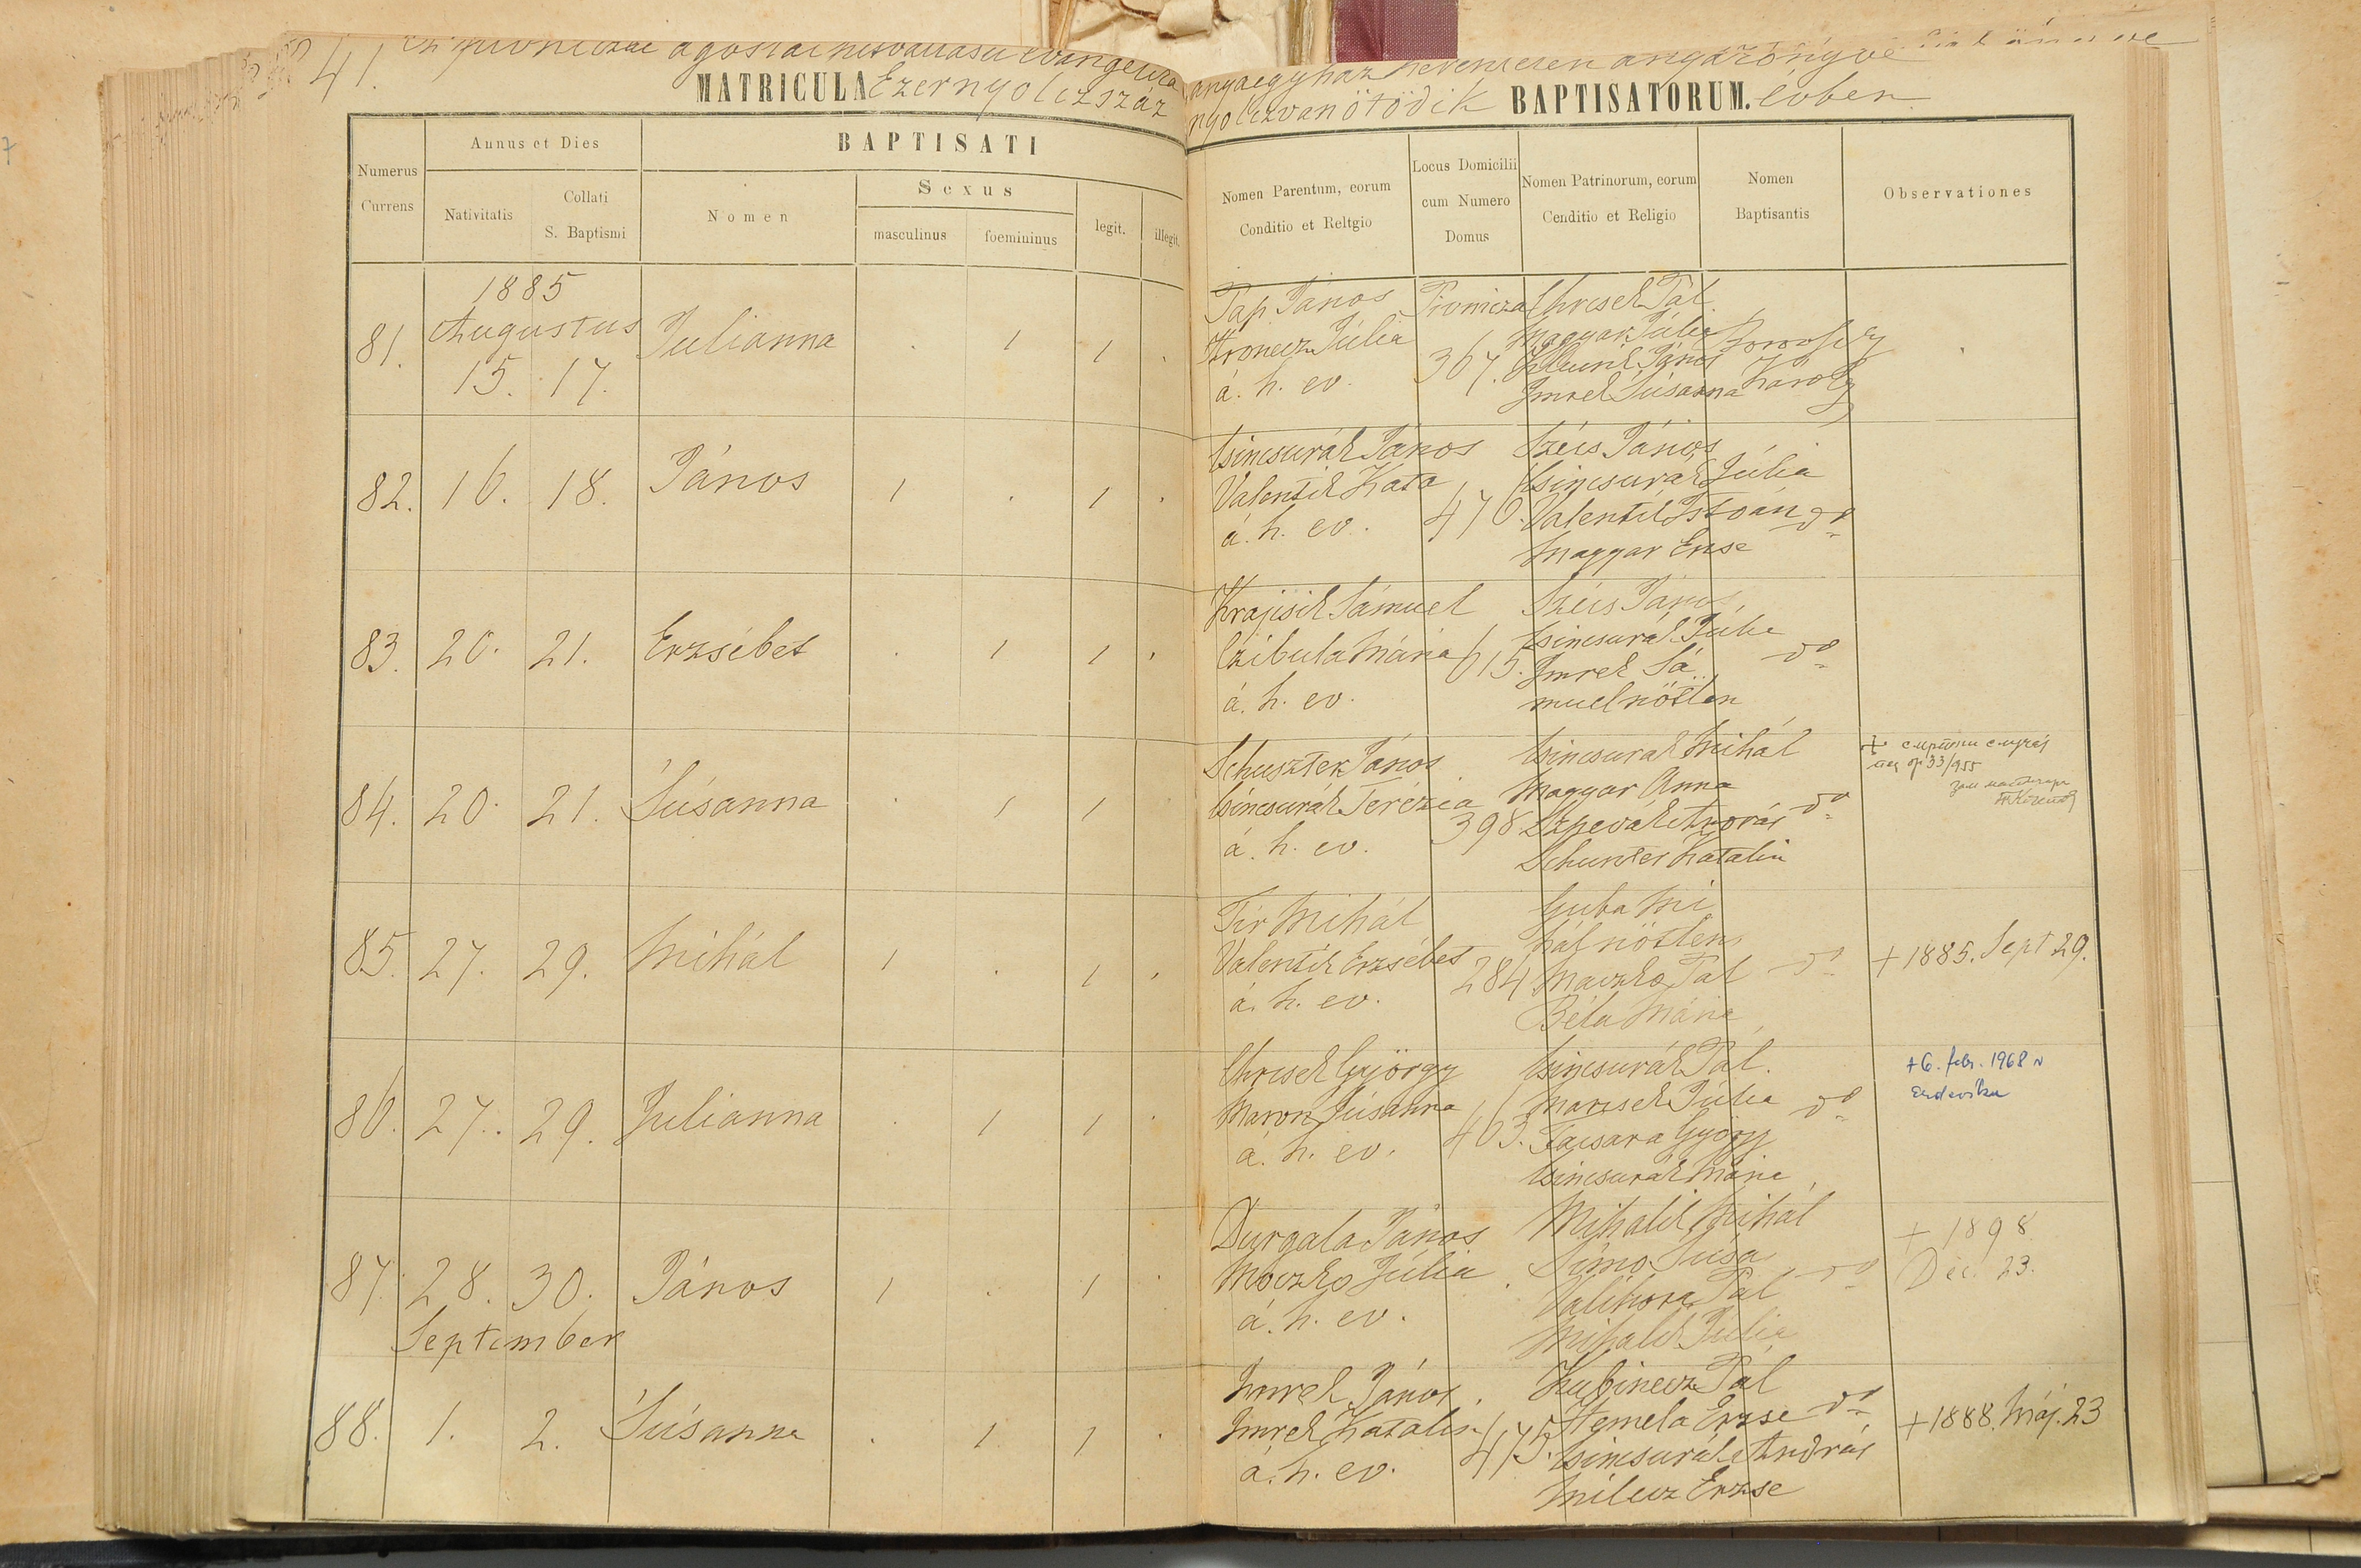 41.
ágostai hitvallásu evangelika
anyaegyház anyakönyve
MATRICULA Ezernyolczszáz
nyolczvanötödik BAPTISATORUM. évben
Numerus Currens
Annus et Dies
Nativitatis
Collati S. Baptismi
BAPTISATI
Nomen
Sexus
masculinus
foemininus
legit.
illegit.
Nomen Parentum, eorum
Conditio et Reltgio
Locus Domicilii
cum Numero
Domus
Nomen Patrinorum, eorum
Cenditio et Religio
Nomen
Baptisantis
Observationes
1885
Augustus
81. 15. 17. Julianna 1 1
Pap János Pivnicza Chrcsek Pál
Kronecz Júlia Magyar Júlia
á. h. ev. 367. János Károly
Imrek Súsanna
82. 16. 18. János 1 1
Csincsurák János Szécs János
Valentik Kata Csincsurak Júlia
á. h. ev. 476. Valentik István do
Magyar Erzse
83. 20. 21. Erzsébet 1 1
Krajcsik Sámuel Szécs János
Czibula Mária 615. Csincsurak Júlia do
á. h. ev. Imrek Sá
muel nőtlen
84. 20. 21. Súsanna 1 1
Schuszter János Csincsurak Mihál
Csincsurák Terézia Magyar Anna
á. h. ev. 398 András do
Katalin
33/955
85. 27. 29. Mihál 1 1
Tir Mihál Guba Mi
Valentik Erzsébet hál nőtlen
á. h. ev. 284 Maczko Pál do
Béla Mária
+ 1885. Sept 29.
86. 27. 29. Julianna 1 1
Chrcsek György Csincsurák Pál.
Maron Súsanna Júlia do
á. h. ev. 463. György
Csincsurák Mária
+ 6. febr. 1968 v
87. 28. 30. János 1 1
Durgala János Mihalik Mihál
Moczko Júlia Simo Susa do
á. h. ev. Valihora Pál
Mihalik Júlia
+ 1898
Dec. 23.
September
88. 1. 2. Súsanna 1 1
Imrek János Kubinecz Pál
Imrek Katalin Hemela Erzse do
á. h. ev. 475. Csincsurák András
Milecz Erzse
+ 1888. Máj. 23